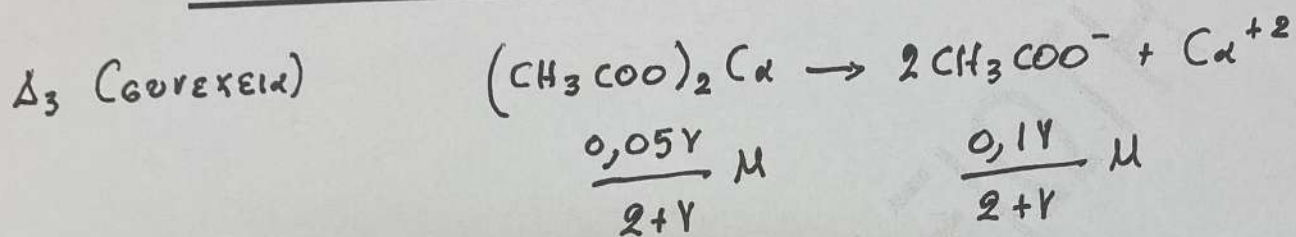 Δ₃ (συνεχεια) (CH₃COO)₂Ca → 2CH₃COO⁻ + Ca⁺²
0,05V/2+V M 0,1V/2+V M